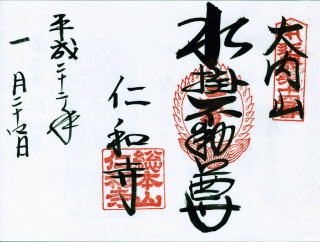 大内山
水掛不動尊
仁和寺
総本山
仁和寺
平成二十二年
一月二十四日